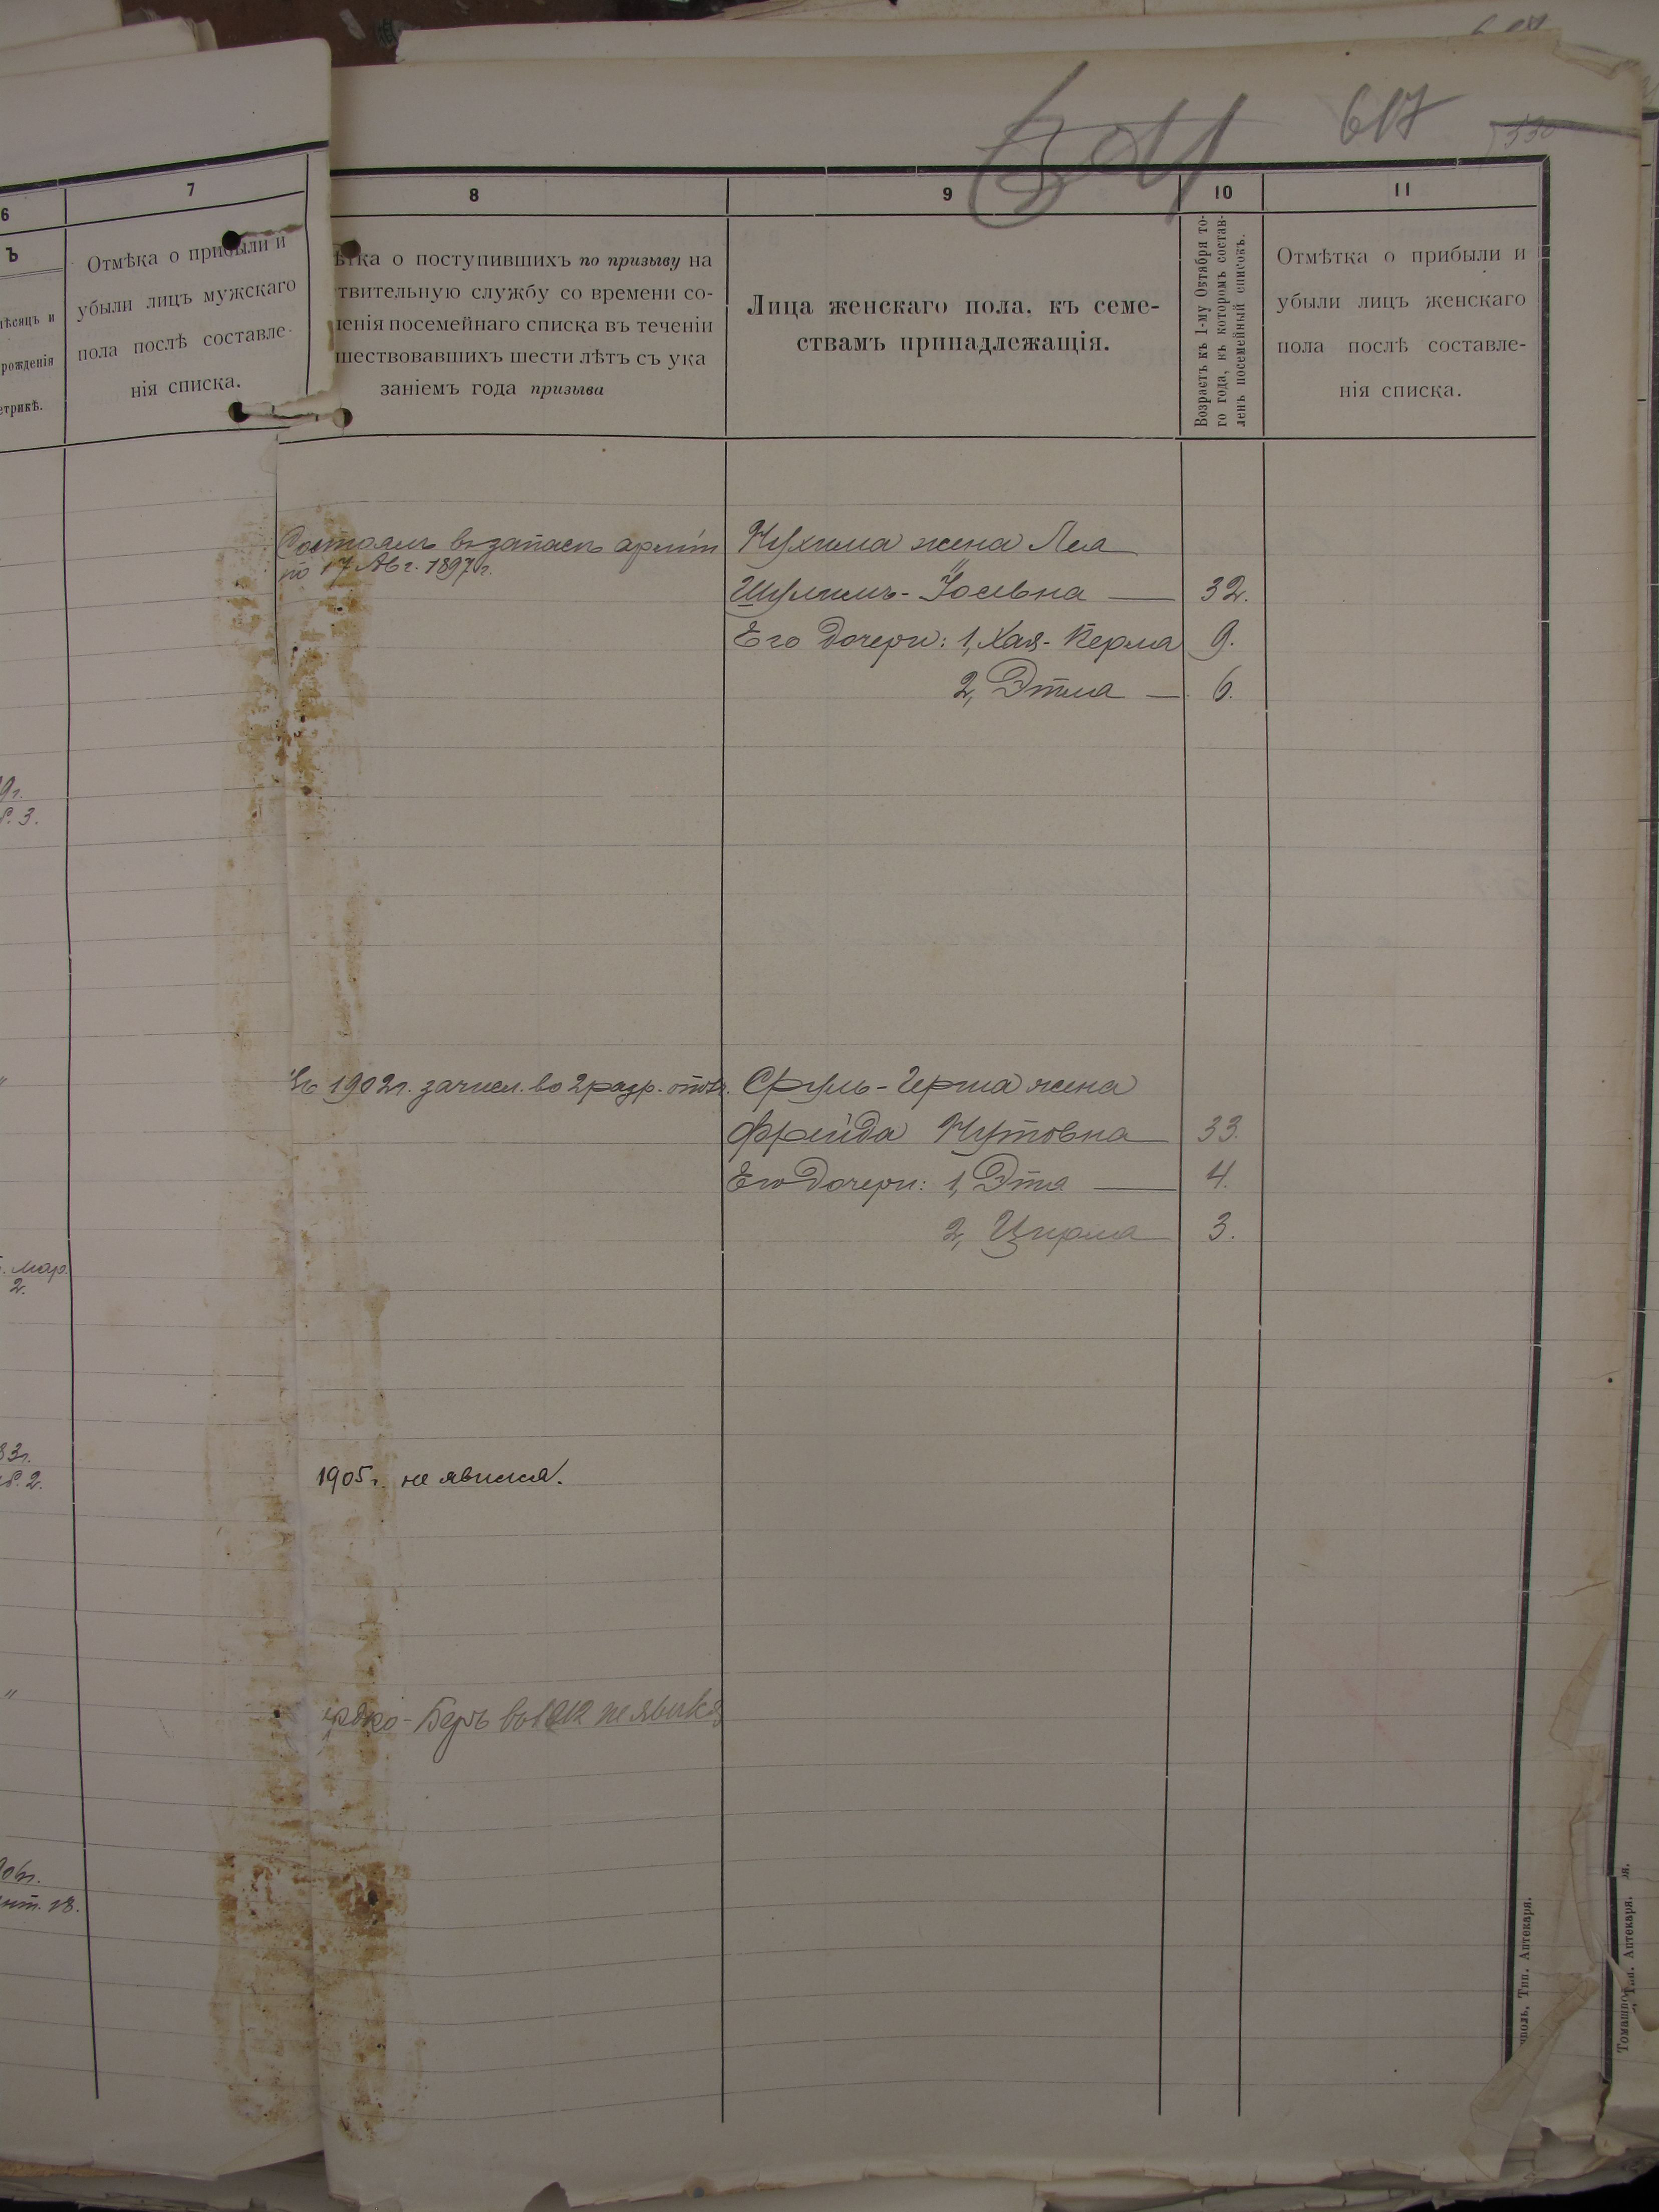 617
6
7
Ъ
мѣсяцъ и
рожденія
етрикѣ.
Отмѣка о прибыли и
убыли лицъ мужскаго
пола послѣ составле-
нія списка.
8
9
10
11
ѣтка о поступившихъ по призыву на
твительную службу со времени со-
ленія посемейнаго списка въ теченіи
шествовавшихъ шести лѣтъ съ ука
заніемъ года призыва
Лица женскаго пола, къ семе-
ствамъ принадлежащія.
Возрастъ къ 1-му Октября то-
го года, къ которомъ состав-
ленъ посемейный списокъ.
Отмѣтка о прибыли и
убыли лицъ женскаго
пола послѣ составле-
нія списка.
Состоялъ въ запасѣ арміи
по 17 Авг. 1897 г.
Нухима жена Лея
Шулимъ-Іосевна — 32.
Его дочери: 1, Хая-Перла 9.
2, Этла — 6.
9г.
3.
Въ 1902г. зачисл. во 2 разр. опол.
Сруль-Герша жена
Фрейда Нутовна — 33.
Его дочери: 1, Этя — 4.
2, Цирля 3.
мар.
2.
83г.
2.
1905г. не явился.
Беръ въ 1912 не явился
18.
Тип. Аптекаря.
Томашпо
Тип. Аптекаря.